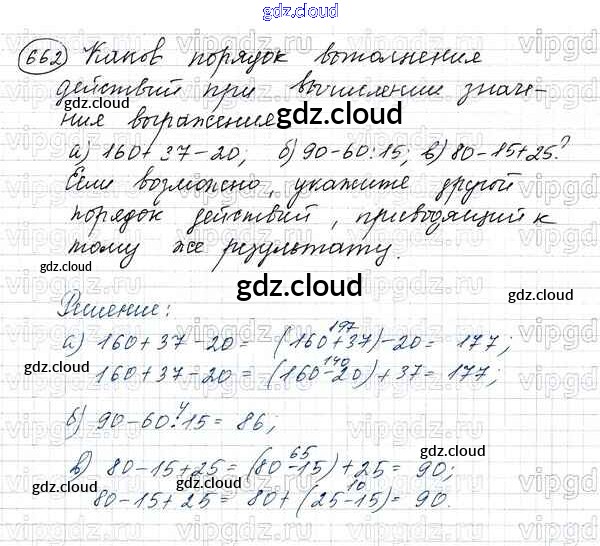 gdz.cloud
662 Каков порядок выполнения
gdz.cloud
действий при вычислении значе-
gdz.cloud
ния выражения
а) 160+37-20; б) 90-60:15; в) 80-15+25?
Если возможно, укажите другой
порядок действий, приводящий к
тому же результату.
gdz.cloud
gdz.cloud
Решение:
197
а) 160+37-20 = (160+37)-20 = 177;
140
160+37-20 = (160-20)+37 = 177;
gdz.cloud
gdz.cloud
4
б) 90-60:15 = 86;
65
в) 80-15+25 = (80-15)+25 = 90;
gdz.cloud
gdz.cloud
10
80-15+25 = 80+(25-15) = 90.
gdz.cloud